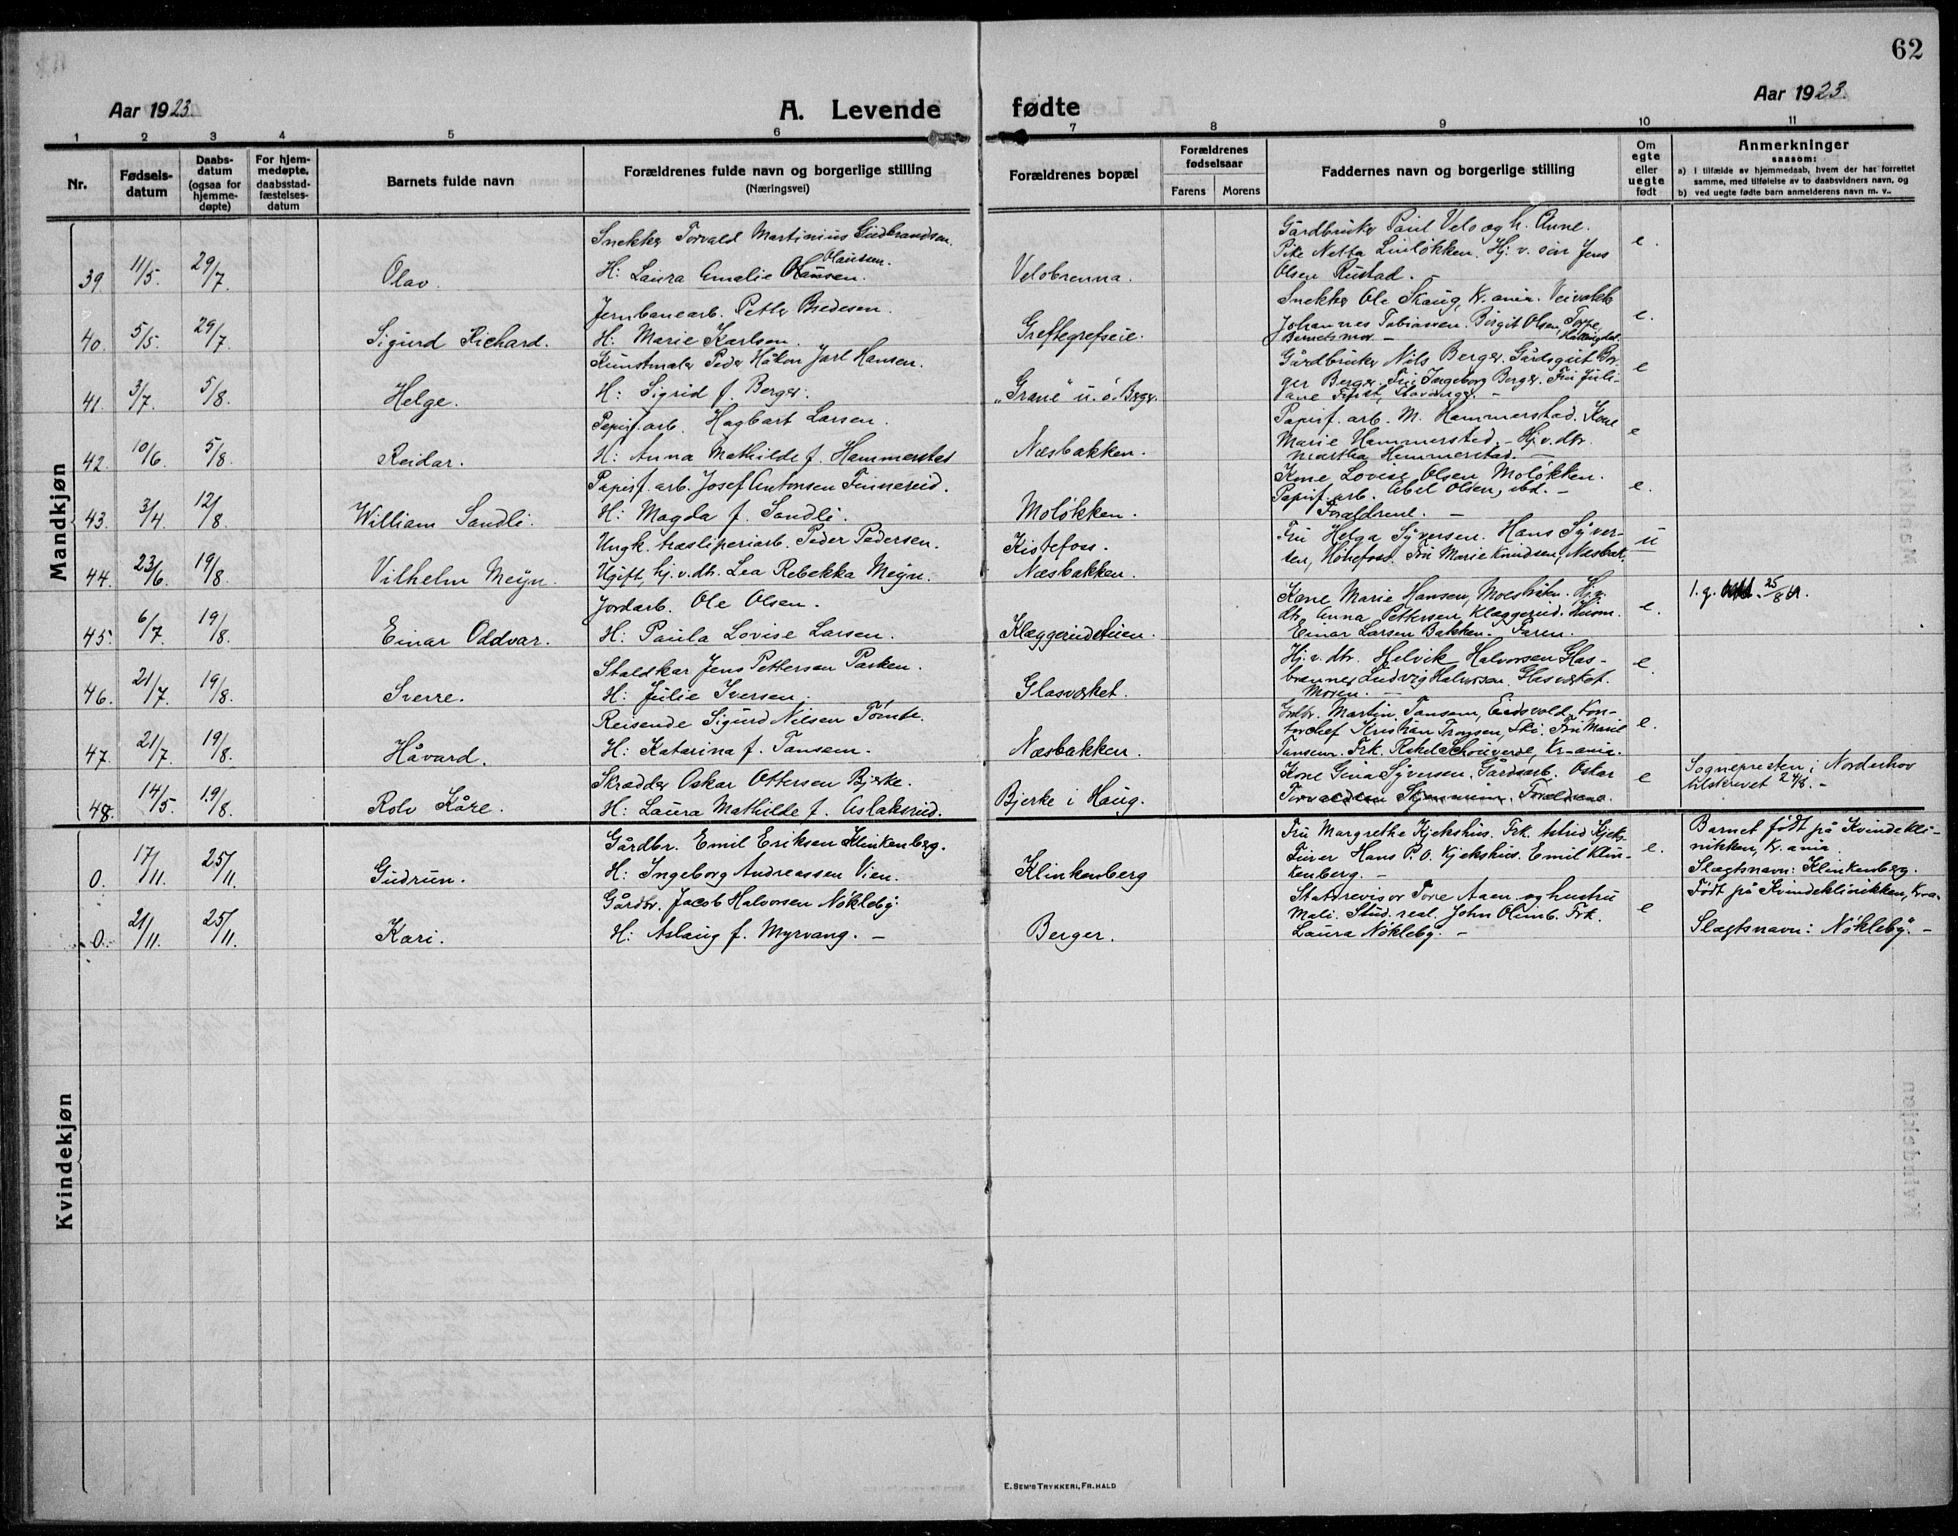 62
Aar 1923.
A. Levende
fødte
Aar 1923.
1 2 3 4 5 6 7 8 9 10 11
Nr.
Fødsels-
datum
Daabs-
datum
(ogsaa for
hjemme-
døpte)
For hjem-
medøpte,
daabsstad-
fæstelses-
datum
Barnets fulde navn
Forældrenes fulde navn og borgerlige stilling
(Næringsvei)
Forældrenes bopæl
Forældrenes
fødselsaar
Farens
Morens
Faddernes navn og borgerlige stilling
Om
egte
eller
uegte
født
Anmerkninger
saasom:
a) I tilfælde av hjemmedaab, hvem der har forrettet
samme, med tilføielse av to daabsvidners navn, og
b) ved uegte fødte barn anmelderens navn m. v..
Mandkjøn
39. 11/5. 29/7 Olav.
Snekker Torvald Martinius Gudbrandsen.
Olausen.
H: Laura Amalie Olausen.
Velobrenna.
Gårdbruker Paul Velo og h. Anne.
Pike Netta Linløkken. Hj. v. søn Jens
Olsen Rustad. –
e.
40. 5/5. 29/7 Sigurd Richard.
Jernbanearb. Petter Bredesen.
H: Marie Karlsen.
Greftegrefseie.
Snekker Ole Skaug, Kr.ania. Veivokt
Johannes Tobiassen. Birgit Olsen, Torpe,
Hallingdal.
Barnets mor. –
e.
41. 3/7 5/8. Helge.
Kunstmaler Peder Håkon Jarl Hansen.
H: Sigrid f. Berger.
„Grane" u. ø. Berger.
Gårdbruker Nils Berger. Gårdsgut Bir-
ger Berger. Fru Ingeborg Berger. Fru Juli-
ane Tvist, Stavanger. –
e
42. 10/6 5/8. Reidar.
Papirf. arb. Hagbart Larsen.
H: Anna Mathilde f. Hammerstad
Næsbakken.
Papirf. arb. M. Hammerstad. Kone
Marie Hammerstad. – Hj. v. dtr.
Martha Hammerstad. –
e
43. 3/4 12/8. William Sandli.
Papirf. arb. Josef Antonsen Finnereid.
H: Magda f. Sandli.
Moløkken.
Kone Lovise Olsen Moløkken.
Papirf. arb. Abel Olsen, ibd. –
Foreldrene. –
e.
44. 23/6. 19/8. Vilhelm Meyn.
Ungk. træsliperiarb. Peder Pedersen.
Ugift, hj. v. dtr. Lea Rebekka Meyn.
Kistefos.
Næsbakken.
Fru Helga Syversen. Hans Syver-
sen, Hønefoss. Fru Marie Knudsen, Næsbak.
u
45. 6/7 19/8. Einar Oddvar.
Jordarb. Ole Olsen.
H: Paula Lovise Larsen.
Klæggerudstuen.
Kone Marie Hansen, Moesbråten. Hj. v.
dtr. Anna Pettersen Klæggerud. Husm.
Einar Larsen Bakken. Faren.
e.
46. 21/7. 19/8. Sverre.
Staldkar Jens Pettersen Pasken.
H: Julie Iversen.
Glasværket.
Hj. v. dtr. Helvik Halvorsen Glas-
brenner Ludvig Halvorsen. Glasværket.
Moren. –
e.
47. 21/7. 19/8. Håvard.
Reisende Sigurd Nilsen Tømte.
H: Katarina f. Tansem.
Næsbakken.
Grdbr. Martin Tansem, Eidsvold. Kon-
torchef Kristian Tronsen, Ski. Fru Marie
Tansem. Frk. Rakel Schouverde, Kr-ania.
e.
48. 14/5 19/8. Rolv Kåre.
Skrædder Oskar Ottersen Bjerke.
H: Laura Mathilde f. Aslaksrud.
Bjerke i Haug.
Kone Gina Syversen. Gårdsarb. Oskar
Torvaldsen Foreldrene.
e
Sognepresten i Norderhov
tilskrevet 24/8. –
Kvindekjøn
0. 17/11. 25/11. Gudrun.
Gårdbr. Emil Eriksen Klinkenberg.
H: Ingeborg Andreassen Vien.
Klinkenberg
Fru Margrethe Kjekshus. Frk. Astrid Kjeks-
Furer Hans P. O. Kjekshus. Emil Klin-
kenberg. –
e.
Barnet født på Kvindekli-
nikken, Kr.ania.
Slægtsnavn: Klinkenberg.
0. 21/11. 25/11. Kari.
Gårdbr. Jacob Halvorsen Nøkleby
H: Aslaug f. Myrvang. –
Berger.
Statsrevisor Tore Aaen og hustru
Mali. Stud. real. John Olimb. Frk.
Laura Nøkleby. –
e
Født på Kvindeklinikken, Kr.a.
Slægtsnavn: Nøkleby. –
E. SEM'S TRYKKERI, FR.HALD